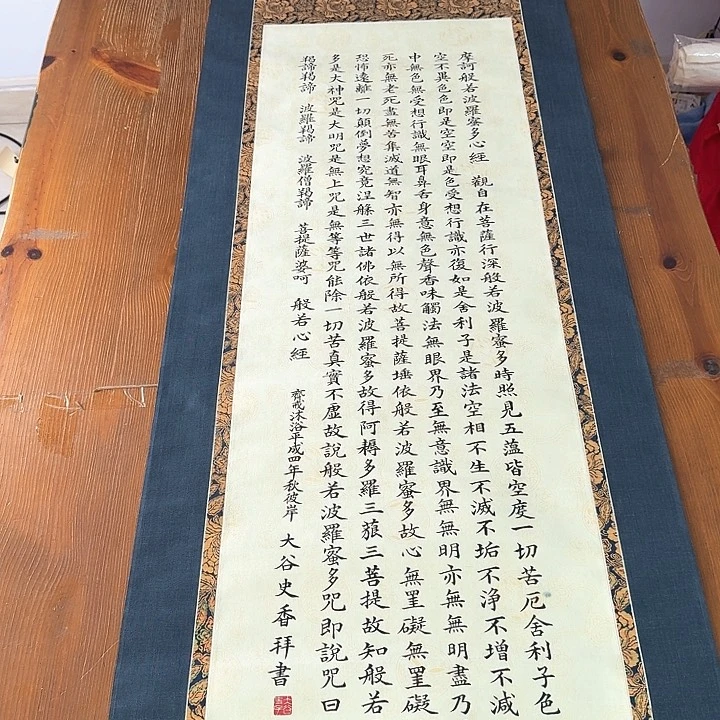 摩訶般若波羅蜜多心經 觀自在菩薩行深般若波羅蜜多時照見五蘊皆空度一切苦厄舍利子色
空不異色色即是空空即是色受想行識亦復如是舍利子是諸法空相不生不滅不垢不浄不增不減
中無色無受想行識無眼耳鼻舌身意無色聲香味觸法無眼界乃至無意識界無無明亦無無明盡乃
死亦無老死盡無苦集滅道無智亦無得以無所得故菩提薩埵依般若波羅蜜多故心無罣礙無罣礙
恐怖遠離一切顛倒夢想究竟涅槃三世諸佛依般若波羅蜜多故得阿耨多羅三藐三菩提故知般若
多是大神咒是大明咒是無上咒是無等等咒能除一切苦真實不虛故說般若波羅蜜多咒即說咒曰
羯諦羯諦 波羅羯諦 波羅僧羯諦 菩提薩婆呵 般若心經
齊戒沐浴平成四年秋彼岸 大谷史香拝書